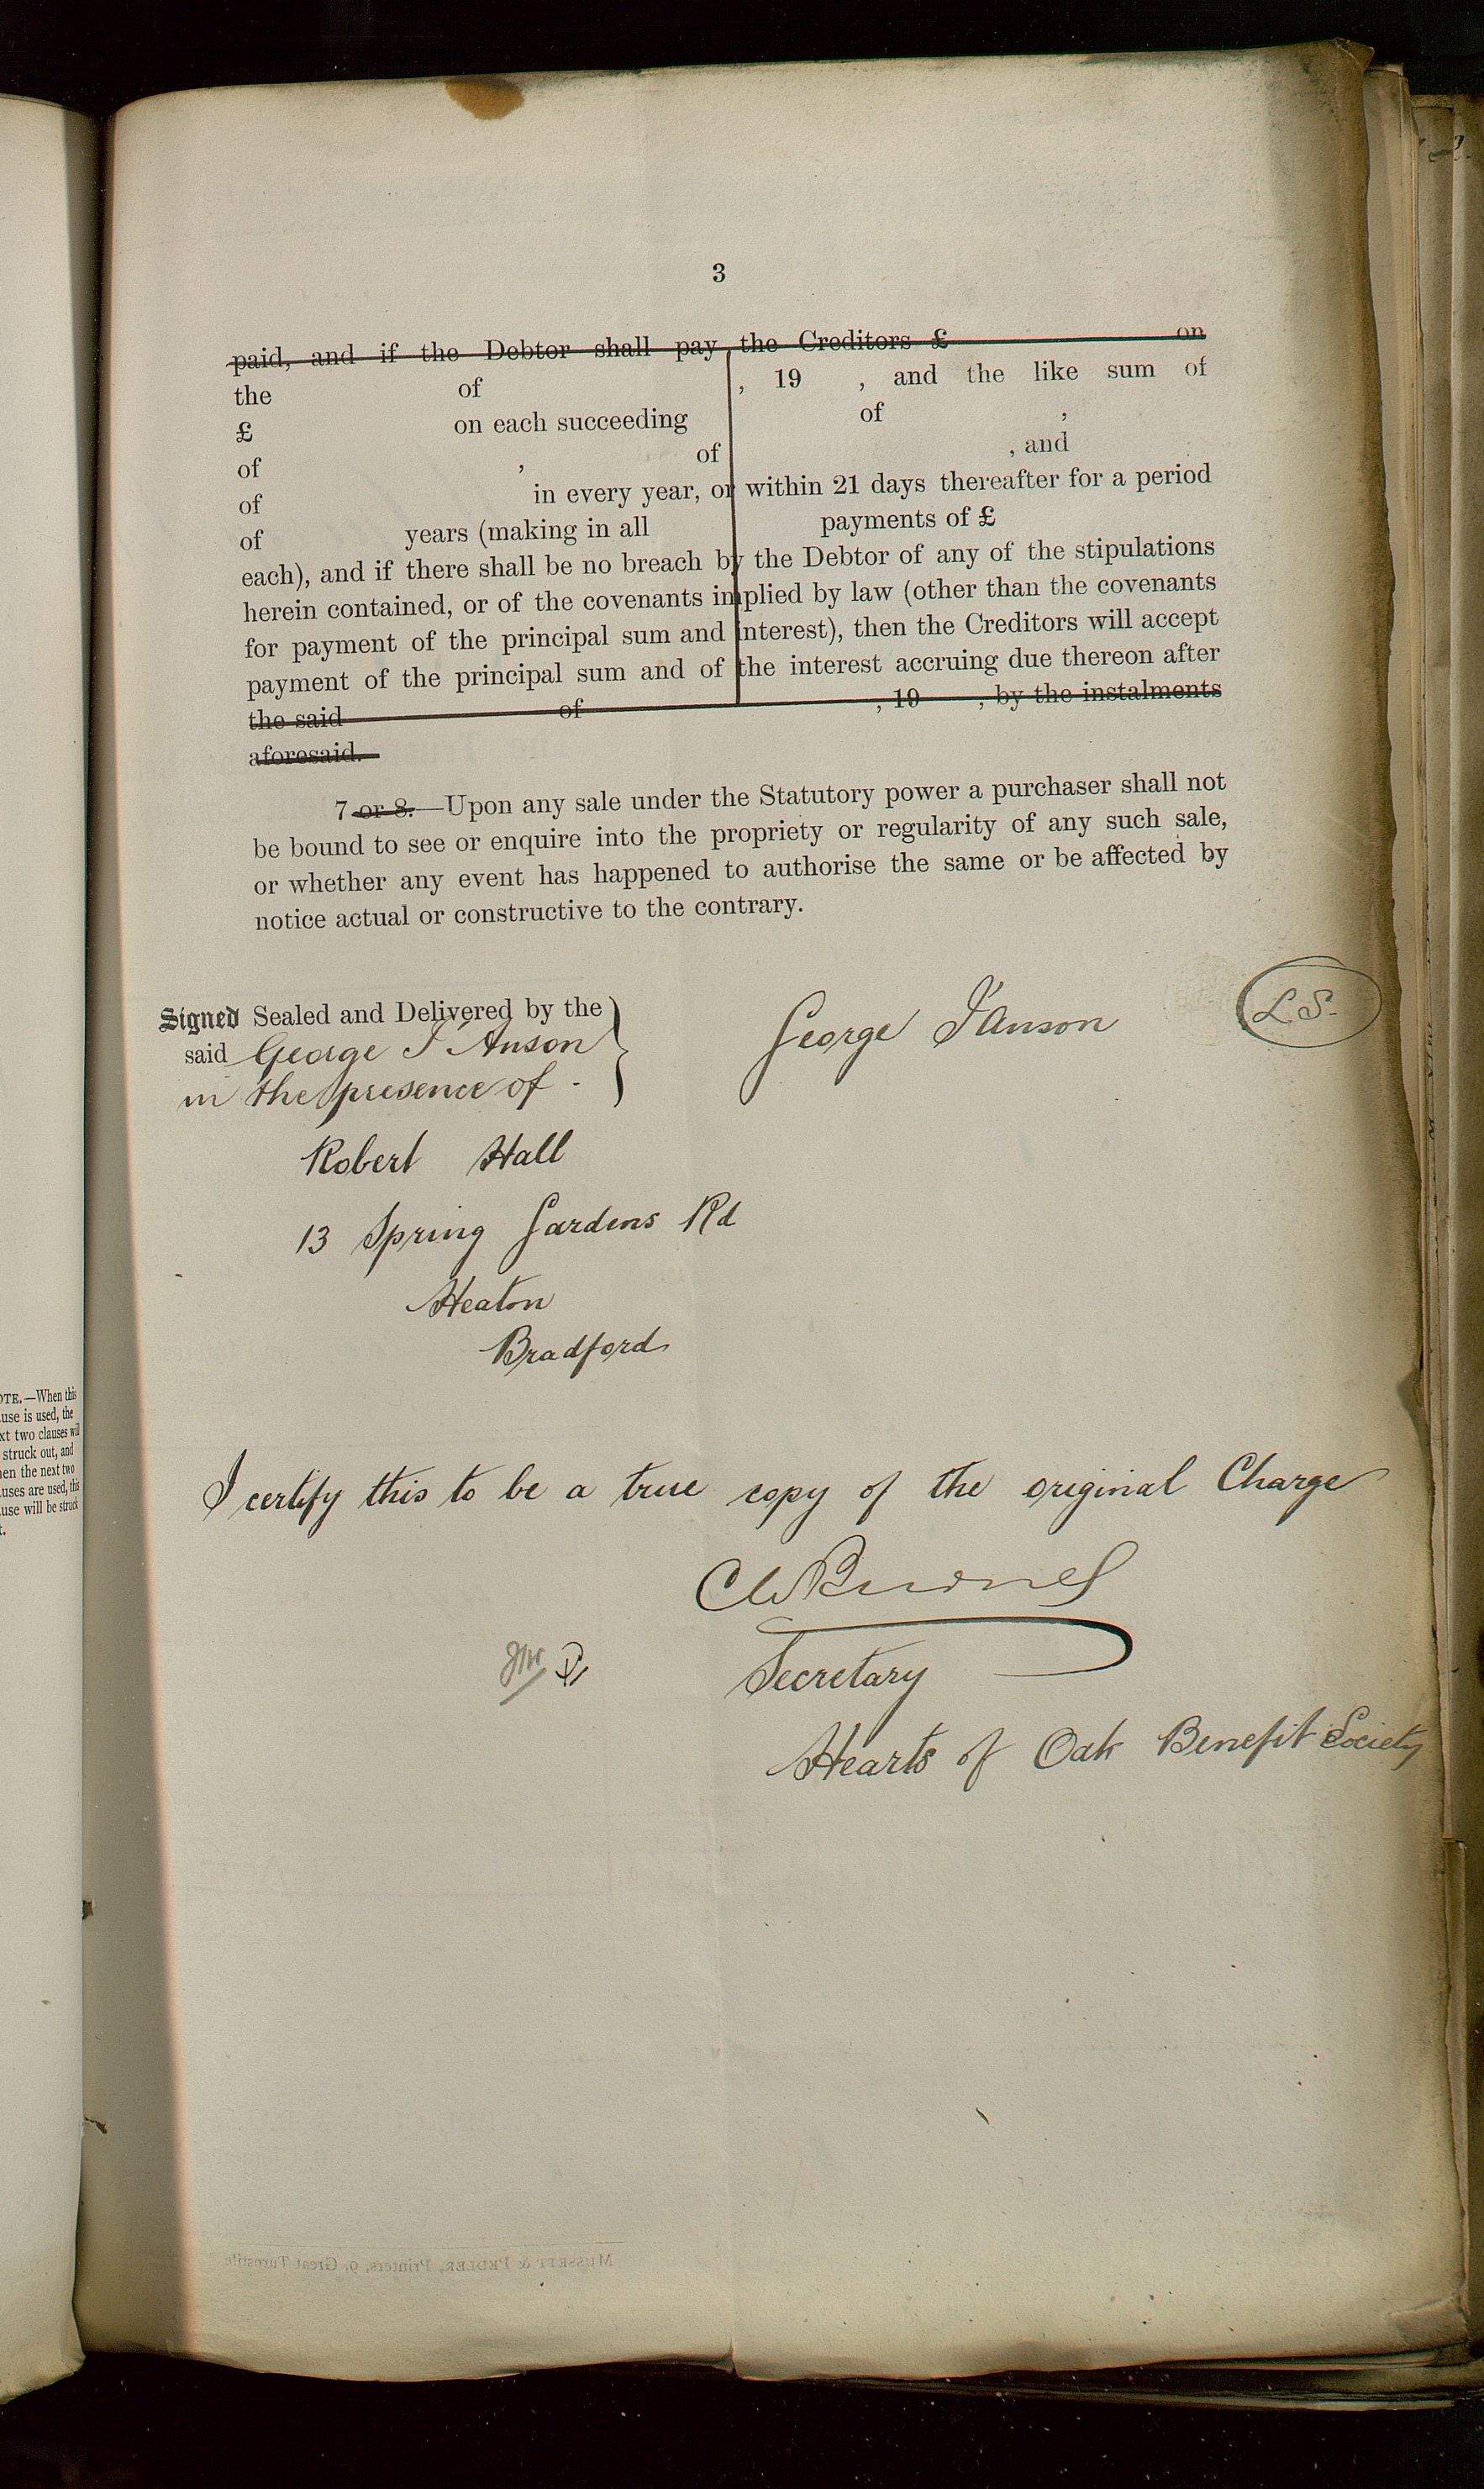 3
paid, and if the Debtor shall pay the Creditors £ on
the of , 19 , and the like sum of
£ on each succeeding of ,
of , of , and
of in every year, or within 21 days thereafter for a period
of years (making in all payments of £
each), and if there shall be no breach by the Debtor of any of the stipulations
herein contained, or of the covenants implied by law (other than the covenants
for payment of the principal sum and interest), then the Creditors will accept
payment of the principal sum and of the interest accruing due thereon after
the said of , 19 , by the instalments
aforesaid.
7 or 8.—Upon any sale under the Statutory power a purchaser shall not
be bound to see or enquire into the propriety or regularity of any such sale,
or whether any event has happened to authorise the same or be affected by
notice actual or constructive to the contrary.
Signed Sealed and Delivered by the
said George I'Anson
in the presence of -
George I'Anson
L S.
Robert Hall
13 Spring Gardens Rd
Heaton
Bradford
OTE.—When this
use is used, the
xt two clauses will
struck out, and
en the next two
uses are used, this
use will be struck
t.
I certify this to be a true copy of the original Charge
Secretary
Hearts of Oak Benefit Society
MUSSETT & PEDLER, Printers, 9, Great Turnstile